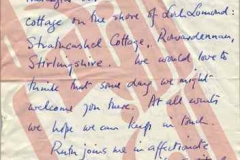 cottage on the shore of Loch Lomond:
Strathcashel Cottage, Rowardennan,
Stirlingshire. We would love to
think that some day we might
welcome you there. At all events
we hope we can keep in touch
Ruth joins me in affectionate